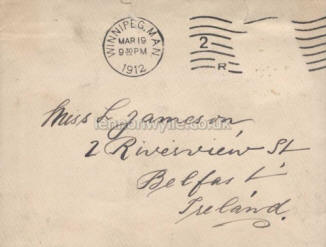 WINNIPEG, MAN
MAR 19
9 30 PM
1912
2
R
Miss L Jameson,
lennonwylie.co.uk
2 Riverview St
Belfast.
Ireland.